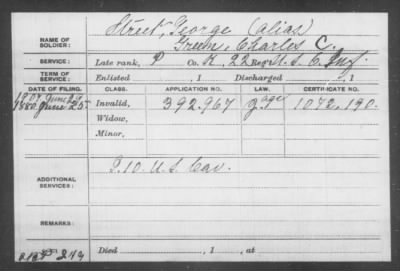 Street, George (alias)
NAME OF SOLDIER: Green, Charles C.
SERVICE: Late rank, P Co. K, 22 Reg't U.S.C. Inf.
TERM OF SERVICE: Enlisted , 1 Discharged , 1
DATE OF FILING. CLASS. APPLICATION NO. LAW. CERTIFICATE NO.
1907 June
1880 June 25 Invalid, 392,967 1072,190.
Widow,
Minor,
ADDITIONAL SERVICES: P. 10. U.S. Cav.
REMARKS:
Died , 1 , at